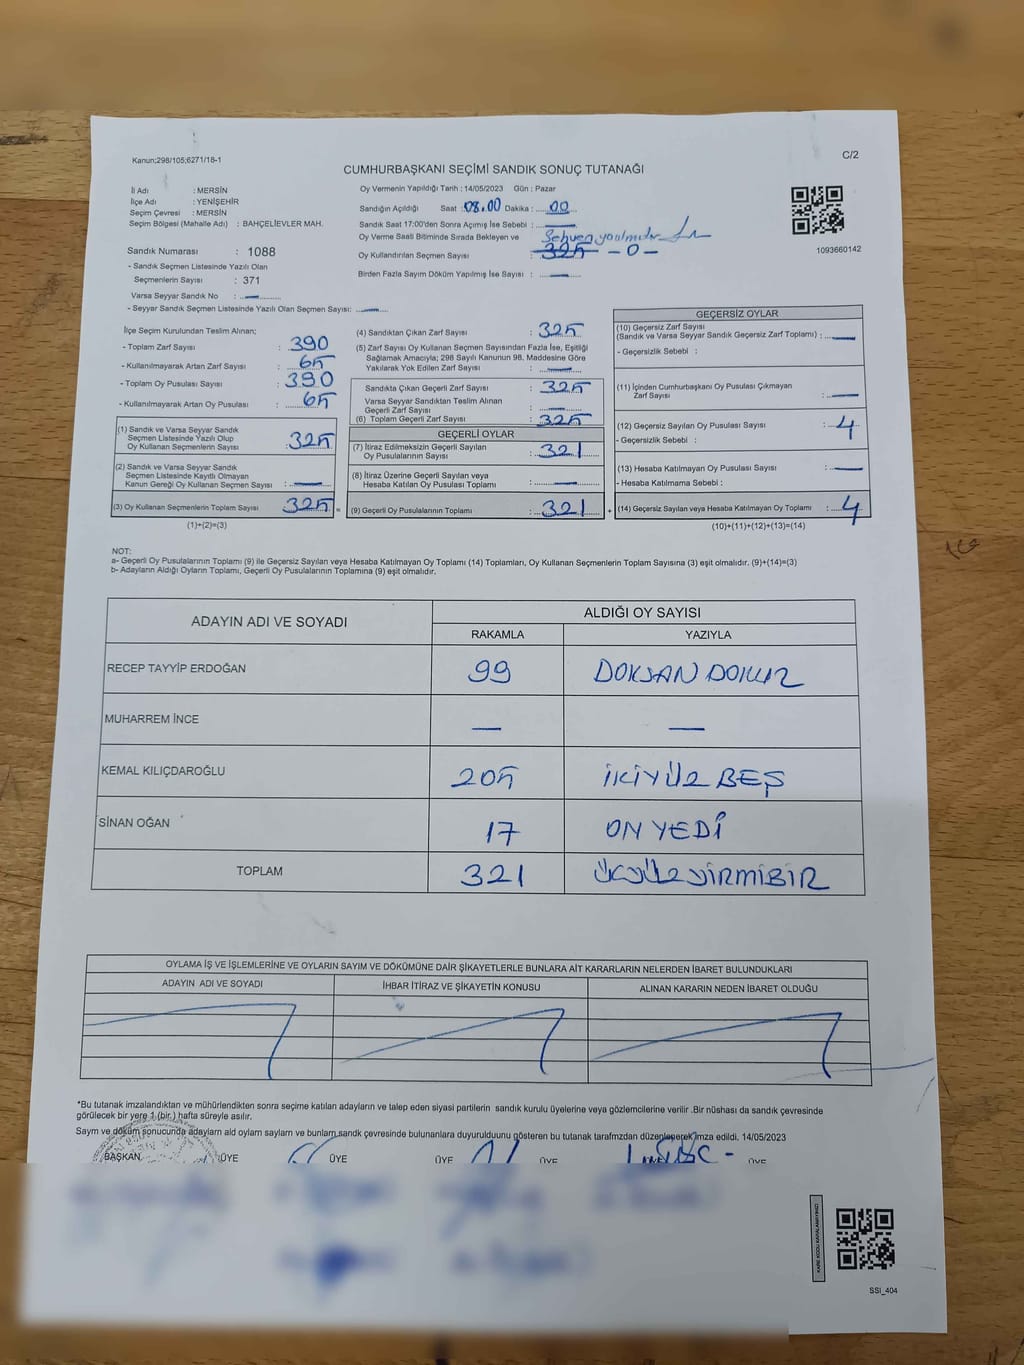 Kanun;298/105;6271/18-1
C/2
CUMHURBAŞKANI SEÇİMİ SANDIK SONUÇ TUTANAĞI
İl Adı : MERSİN
İlçe Adı : YENİŞEHİR
Seçim Çevresi : MERSİN
Seçim Bölgesi (Mahalle Adı) : BAHÇELİEVLER MAH.
Sandık Numarası : 1088
- Sandık Seçmen Listesinde Yazılı Olan
Seçmenlerin Sayısı : 371
Varsa Seyyar Sandık No : —
- Seyyar Sandık Seçmen Listesinde Yazılı Olan Seçmen Sayısı: —
Oy Vermenin Yapıldığı Tarih : 14/05/2023 Gün : Pazar
Sandığın Açıldığı Saat : 08.00 Dakika : 00
Sandık Saat 17:00'den Sonra Açımış İse Sebebi : —
Oy Verme Saati Bitiminde Sırada Bekleyen ve
Sehven yazılmıştır
Oy Kullandırılan Seçmen Sayısı : 325 -0-
Birden Fazla Sayım Döküm Yapılmış İse Sayısı : —
1093660142
İlçe Seçim Kurulundan Teslim Alınan;
- Toplam Zarf Sayısı : 390
- Kullanılmayarak Artan Zarf Sayısı : 65
- Toplam Oy Pusulası Sayısı : 390
- Kullanılmayarak Artan Oy Pusulası : 65
(1) Sandık ve Varsa Seyyar Sandık
Seçmen Listesinde Yazılı Olup
Oy Kullanan Seçmenlerin Sayısı : 325
(2) Sandık ve Varsa Seyyar Sandık
Seçmen Listesinde Kayıtlı Olmayan
Kanun Gereği Oy Kullanan Seçmen Sayısı : —
(3) Oy Kullanan Seçmenlerin Toplam Sayısı : 325 =
(1)+(2)=(3)
(4) Sandıktan Çıkan Zarf Sayısı : 325
(5) Zarf Sayısı Oy Kullanan Seçmen Sayısından Fazla İse, Eşitliği
Sağlamak Amacıyla; 298 Sayılı Kanunun 98. Maddesine Göre
Yakılarak Yok Edilen Zarf Sayısı : —
Sandıkta Çıkan Geçerli Zarf Sayısı : 325
Varsa Seyyar Sandıktan Teslim Alınan
Geçerli Zarf Sayısı : —
(6) Toplam Geçerli Zarf Sayısı : 325
GEÇERLİ OYLAR
(7) İtiraz Edilmeksizin Geçerli Sayılan
Oy Pusulalarının Sayısı : 321
(8) İtiraz Üzerine Geçerli Sayılan veya
Hesaba Katılan Oy Pusulası Toplamı : —
(9) Geçerli Oy Pusulalarının Toplamı : 321 +
GEÇERSİZ OYLAR
(10) Geçersiz Zarf Sayısı
(Sandık ve Varsa Seyyar Sandık Geçersiz Zarf Toplamı) : —
- Geçersizlik Sebebi :
(11) İçinden Cumhurbaşkanı Oy Pusulası Çıkmayan
Zarf Sayısı : —
(12) Geçersiz Sayılan Oy Pusulası Sayısı : 4
- Geçersizlik Sebebi :
(13) Hesaba Katılmayan Oy Pusulası Sayısı : —
- Hesaba Katılmama Sebebi :
(14) Geçersiz Sayılan veya Hesaba Katılmayan Oy Toplamı : 4
(10)+(11)+(12)+(13)=(14)
NOT:
a- Geçerli Oy Pusulalarının Toplamı (9) ile Geçersiz Sayılan veya Hesaba Katılmayan Oy Toplamı (14) Toplamları, Oy Kullanan Seçmenlerin Toplam Sayısına (3) eşit olmalıdır. (9)+(14)=(3)
b- Adayların Aldığı Oyların Toplamı, Geçerli Oy Pusulalarının Toplamına (9) eşit olmalıdır.
ADAYIN ADI VE SOYADI
ALDIĞI OY SAYISI
RAKAMLA YAZIYLA
RECEP TAYYİP ERDOĞAN 99 DOKSAN DOKUZ
MUHARREM İNCE — —
KEMAL KILIÇDAROĞLU 205 İKİYÜZ BEŞ
SİNAN OĞAN 17 ON YEDİ
TOPLAM 321 ÜÇYÜZYİRMİBİR
OYLAMA İŞ VE İŞLEMLERİNE VE OYLARIN SAYIM VE DÖKÜMÜNE DAİR ŞİKAYETLERLE BUNLARA AİT KARARLARIN NELERDEN İBARET BULUNDUKLARI
ADAYIN ADI VE SOYADI İHBAR İTİRAZ VE ŞİKAYETİN KONUSU ALINAN KARARIN NEDEN İBARET OLDUĞU
*Bu tutanak imzalandıktan ve mühürlendikten sonra seçime katılan adayların ve talep eden siyasi partilerin sandık kurulu üyelerine veya gözlemcilerine verilir .Bir nüshası da sandık çevresinde
görülecek bir yere 1 (bir.) hafta süreyle asılır.
Saym ve döküm sonucunda adaylarn ald oylarn saylarn ve bunlarn sandk çevresinde bulunanlara duyurulduunu gösteren bu tutanak tarafmzdan düzenlenerek imza edildi. 14/05/2023
BAŞKAN ÜYE ÜYE ÜYE ÜYE ÜYE
KARE KODU KARALAMAYINIZ!
SSI_404